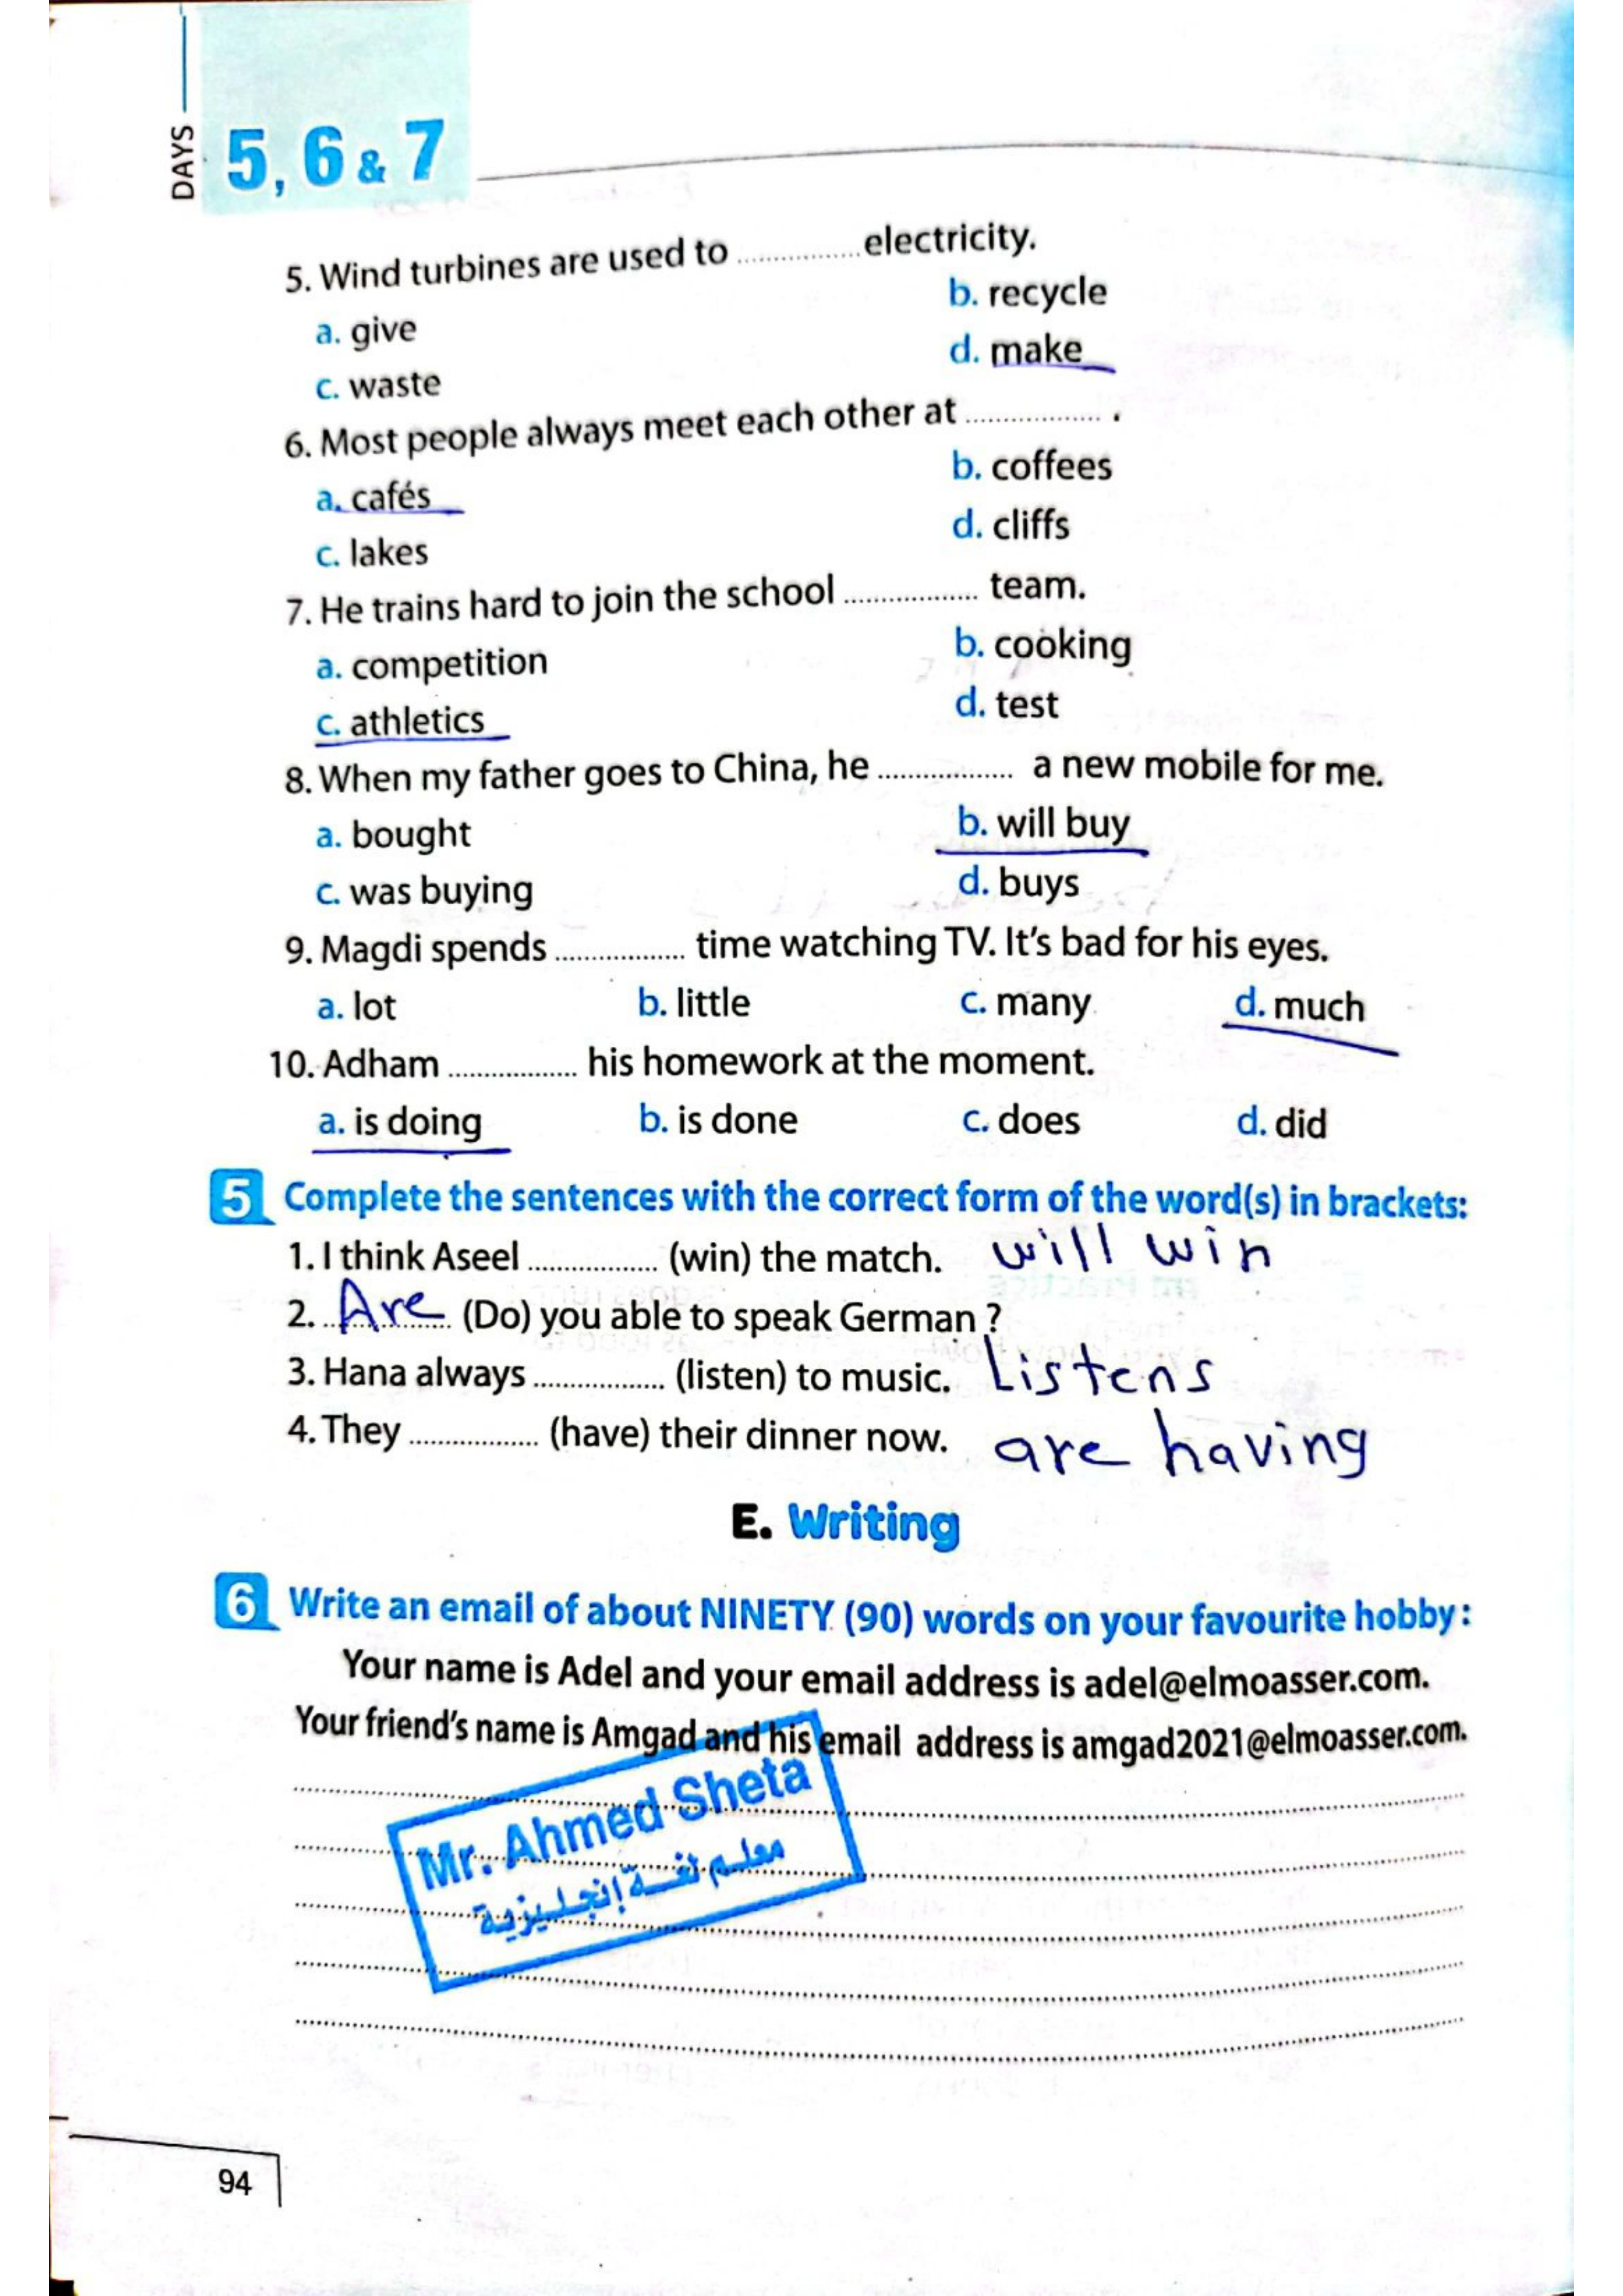 DAYS 5, 6 & 7
5. Wind turbines are used to ............... electricity.
a. give b. recycle
c. waste d. make
6. Most people always meet each other at ................ .
a. cafés b. coffees
c. lakes d. cliffs
7. He trains hard to join the school ................ team.
a. competition b. cooking
c. athletics d. test
8. When my father goes to China, he ................ a new mobile for me.
a. bought b. will buy
c. was buying d. buys
9. Magdi spends ................ time watching TV. It's bad for his eyes.
a. lot b. little c. many d. much
10. Adham ................ his homework at the moment.
a. is doing b. is done c. does d. did
5 Complete the sentences with the correct form of the word(s) in brackets:
1. I think Aseel ................ (win) the match. will win
2. Are (Do) you able to speak German ?
3. Hana always ................ (listen) to music. Listens
4. They ................ (have) their dinner now. are having
E. Writing
6 Write an email of about NINETY (90) words on your favourite hobby:
Your name is Adel and your email address is adel@elmoasser.com.
Your friend's name is Amgad and his email address is amgad2021@elmoasser.com.
Mr. Ahmed Sheta
معلم لغة إنجليزية
94